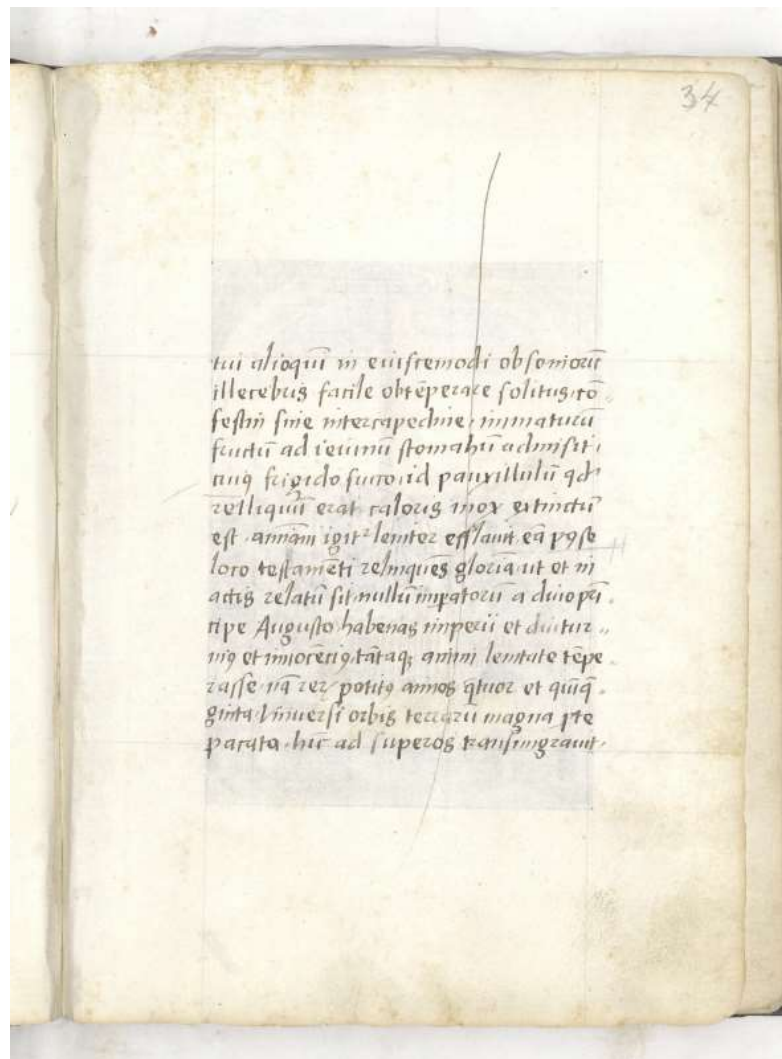 34
tui alioqui in eiuscemodi obsonioru̅
illecebris facile obte̅perare solitus, co̅
festin sine intercapedine, inmaturu̅
fructu̅ ad ieiunu̅ stomahu̅ admisit,
cuiꝰ frigido succo, id pauxillulu̅ qd
relliquiu̅ erat caloris mox extinctu̅
est. annam igitᷣ leniter efflauit ea̅ pꝯse
loco testame̅ti relinque̅s gloria̅, ut et in
actis relatu̅ sit, nullu̅ imꝑatoru̅ a diuo pri̅
cipe Augusto, habenas imperii et diutur
niꝰ et innoce̅ciꝰ, ta̅taqꝫ animi lenitate te̅pe
rasse. na̅ rerꝝ potitꝰ annos q̅tuor et qui̅q̅
ginta, Vniuersi orbis terraru̅ magna ꝑte
pacata, hi̅c ad superos transmigrauit,